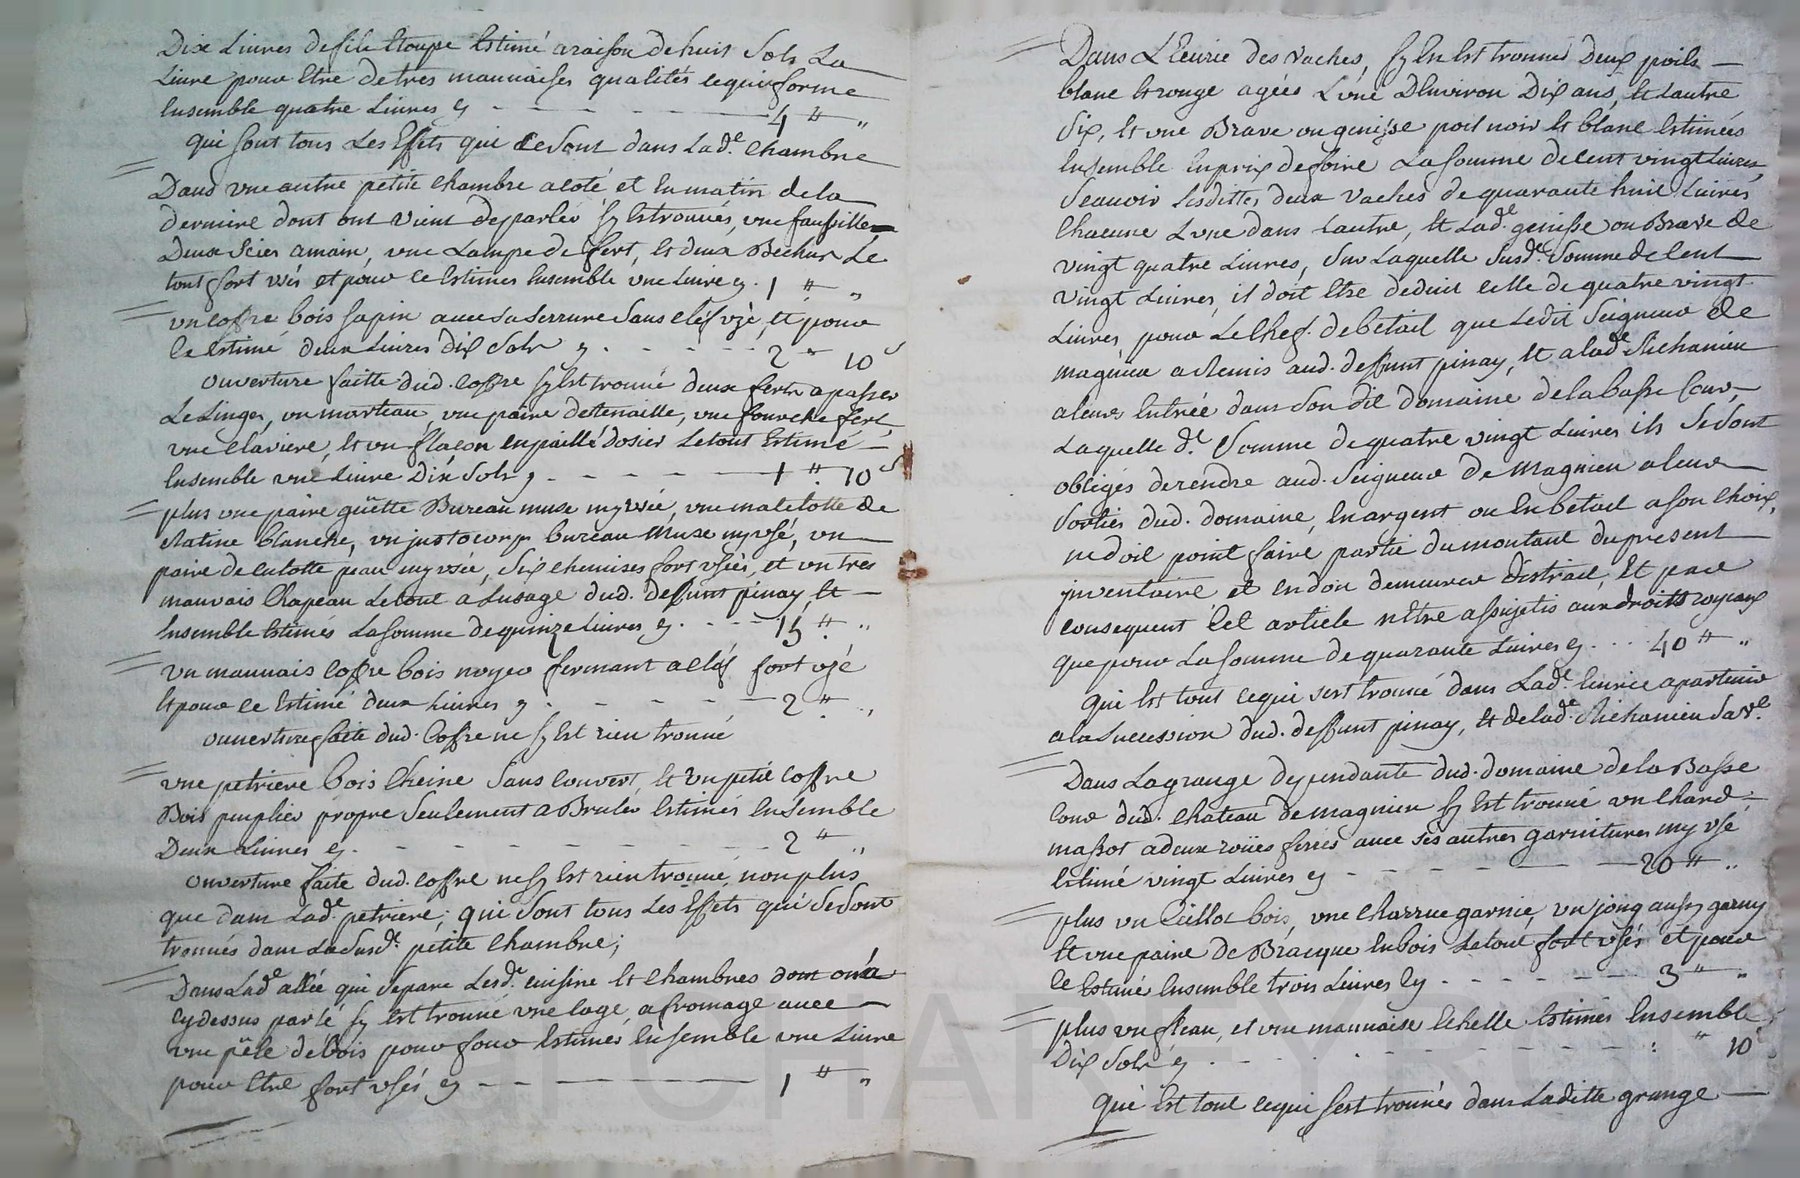 Dix Livres de file Etoupe Estimé a raison de huit Sols La
Livre pour Etre de tres mauvaises qualités ce qui forme
Ensemble quatre Livres cy - - - - 4 ₶ "
Qui sont tous Les Effets qui se sont dans Lad.e Chambre
Dans une autre petite Chambre a coté et en matin de la
derniere dont ont vient de parler sy Est trouvés, une faussille
Deux Scies a main, une Lampe de fert, et deux Bechus Le
tout fort usés et pour ce Estimés Ensemble une Livre cy . 1 ₶ "
un coffre bois sapin avec sa serrure sans cléf usé, Et pour
ce Estimé deux Livres dix Sols cy . - - - 2 ₶ 10 s
ouverture faitte dud. coffre sy Est trouvé deux ferts a passer
Le Linges, un marteau, une paire de tenaille, une fourche fert,
une claviere, et un flacon enpaillé dosier Le tout Estimé
Ensemble une Livre Dix Sols cy . - - - 1 ₶ 10 s
plus une paire guëtte Bureau muse my usée, une matelotte de
Ratine blanche, un justocorps bureau muse my usé, un
paire de culotte peau my usée, Six chemises fort usées, et un tres
mauvais Chapeau Le tout a Lusage dud. deffunt pinay, Et
Ensemble Estimés La somme de quinze Livres cy . - - - 15 ₶ "
un mauvais coffre bois noyer fermant a cléf fort usé
Et pour ce Estimé deux Livres cy . - - - - 2 ₶ "
ouverture faite dud. Coffre ne sy Est rien trouvé
une petriere bois Cheine sans couvert, Et un petit coffre
Bois puplier propre Seulement a Bruler Estimés Ensemble
Deux Livres cy . - - - - 2 ₶ "
ouverture faite dud. coffre ne sy Est rien trouvé, non plus
que dans Lad.e petriere; qui Sont tous Les Effets qui Se Sont
trouvés dans La Susd.e petite Chambre;
Dans Lad.e allée qui Separe Lesd.e cuisine Et Chambres dont on a
cy dessus parlé sy Est trouvé une cage a fromage avec
une pële de bois pour four Estimés Ensemble une Livre
pour Etre fort usés cy - - - - 1 ₶ "
Dans L'Ecurie des vaches, sy En Est trouvés Deux poils
blanc Et rouge agées L'une D'Environ Dix ans, Et Lautre
Six, Et une Brave ou genisse poil noir Et blanc Estimées
Ensemble En prix de foire La somme de Cent vingt Livres,
Scavoir Lesdittes deux Vaches de quarante huit Livres
Chacune Lune dans Lautre, Et Lad.e genisse ou Brave de
vingt quatre Livres, Sur Laquelle Susd.e Somme de Cent
vingt Livres, il doit Etre deduit celle de quatre vingt
Livres, pour Le Chef de betail que Ledit Seigneur de
Magnieu a Remis aud. deffunt pinay, Et a Lad.e Richanieu
a leurs Entrée dans Son dit domaine de la basse Cour,
Laquelle d.e Somme de quatre vingt Livres ils Se Sont
obligés de rendre aud. Seigneur de Magnieu a leur
Sorties dud. domaine, En argent ou En betail a son Choix,
ne doit point faire partie du montant du present
inventaire et En doit demeurer distrait, Et par
consequent Cet article n'Etre assujetis aux droits royaux
que pour La somme de quarante Livres cy . . . 40 ₶ "
Qui Est tout ce qui sest trouvé dans Lad.e Ecurie apartenir
a la Succession dud. deffunt pinay, Et de lad.e Richanieu Sa v.e
Dans La grange dependante dud. domaine de la Basse
Cour dud. Chateau de magnieu sy Est trouvé un Chard
massot a deux roües ferrés avec ses autres garnitures my usé
Estimé vingt Livres cy - - - - 20 ₶ "
plus un bois, une Charrue garnie, un joug aussy garny
Et une paire de Bracque En bois Le tout fort usés et pour
ce Estimé Ensemble trois Livres Cy - - - - 3 ₶ "
plus un fleau, et une mauvaise Echelle Estimés Ensemble
Dix Sols cy . - - - - : ₶ 10 s
Qui Est tout ce qui sest trouvés dans Laditte grange